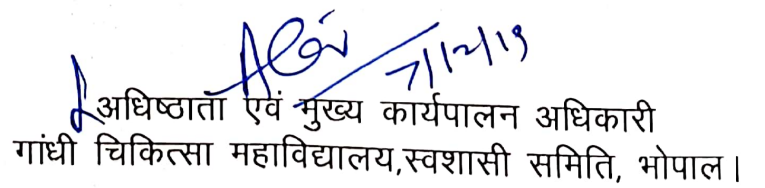 7/12/19
अधिष्ठाता एवं मुख्य कार्यपालन अधिकारी
गांधी चिकित्सा महाविद्यालय,स्वशासी समिति, भोपाल।